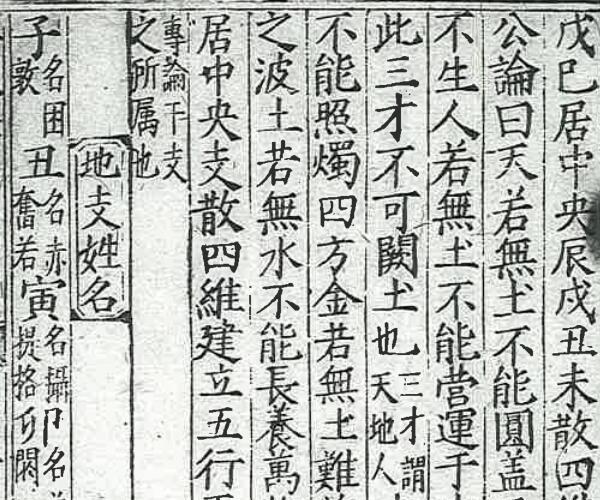 戊巳居中央辰戌丑未散四
公論曰天若無土不能圓盖
不生人若無土不能營運于
此三才不可闕土也三才謂天地人
不能照燭四方金若無土難
之波土若無水不能長養萬
居中央支散四維建立五行
專論干支之所属也
地支姓名
子名困敦丑名赤奮若寅名攝提格卯名